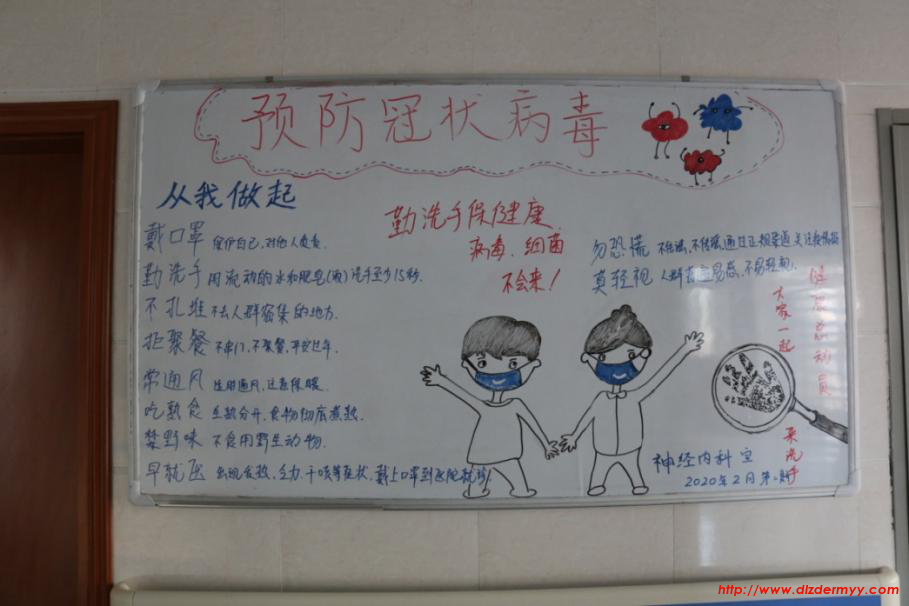 预防冠状病毒
从我做起
戴口罩 保护自己,对他人负责.
勤洗手 用流动的水和肥皂(液)洗手至少15秒.
不扎堆 不去人群密集的地方.
拒聚餐 不串门,不聚餐,平安过年.
常通风 注意保暖.
吃熟食 生熟分开,食物彻底煮熟.
禁野味 不食用野生动物.
早就医 出现发热,乏力,干咳等症状,戴上口罩到医院就诊.
勤洗手保健康
病毒、细菌
不会来!
勿恐慌 不信谣,不传谣,通过正规渠道关注疫情
莫轻视 人群普遍易感,不易轻视.
健康总动员
大家一起
来洗手
神经内科宣
2020年2月第
http://www.dlzdermyy.com